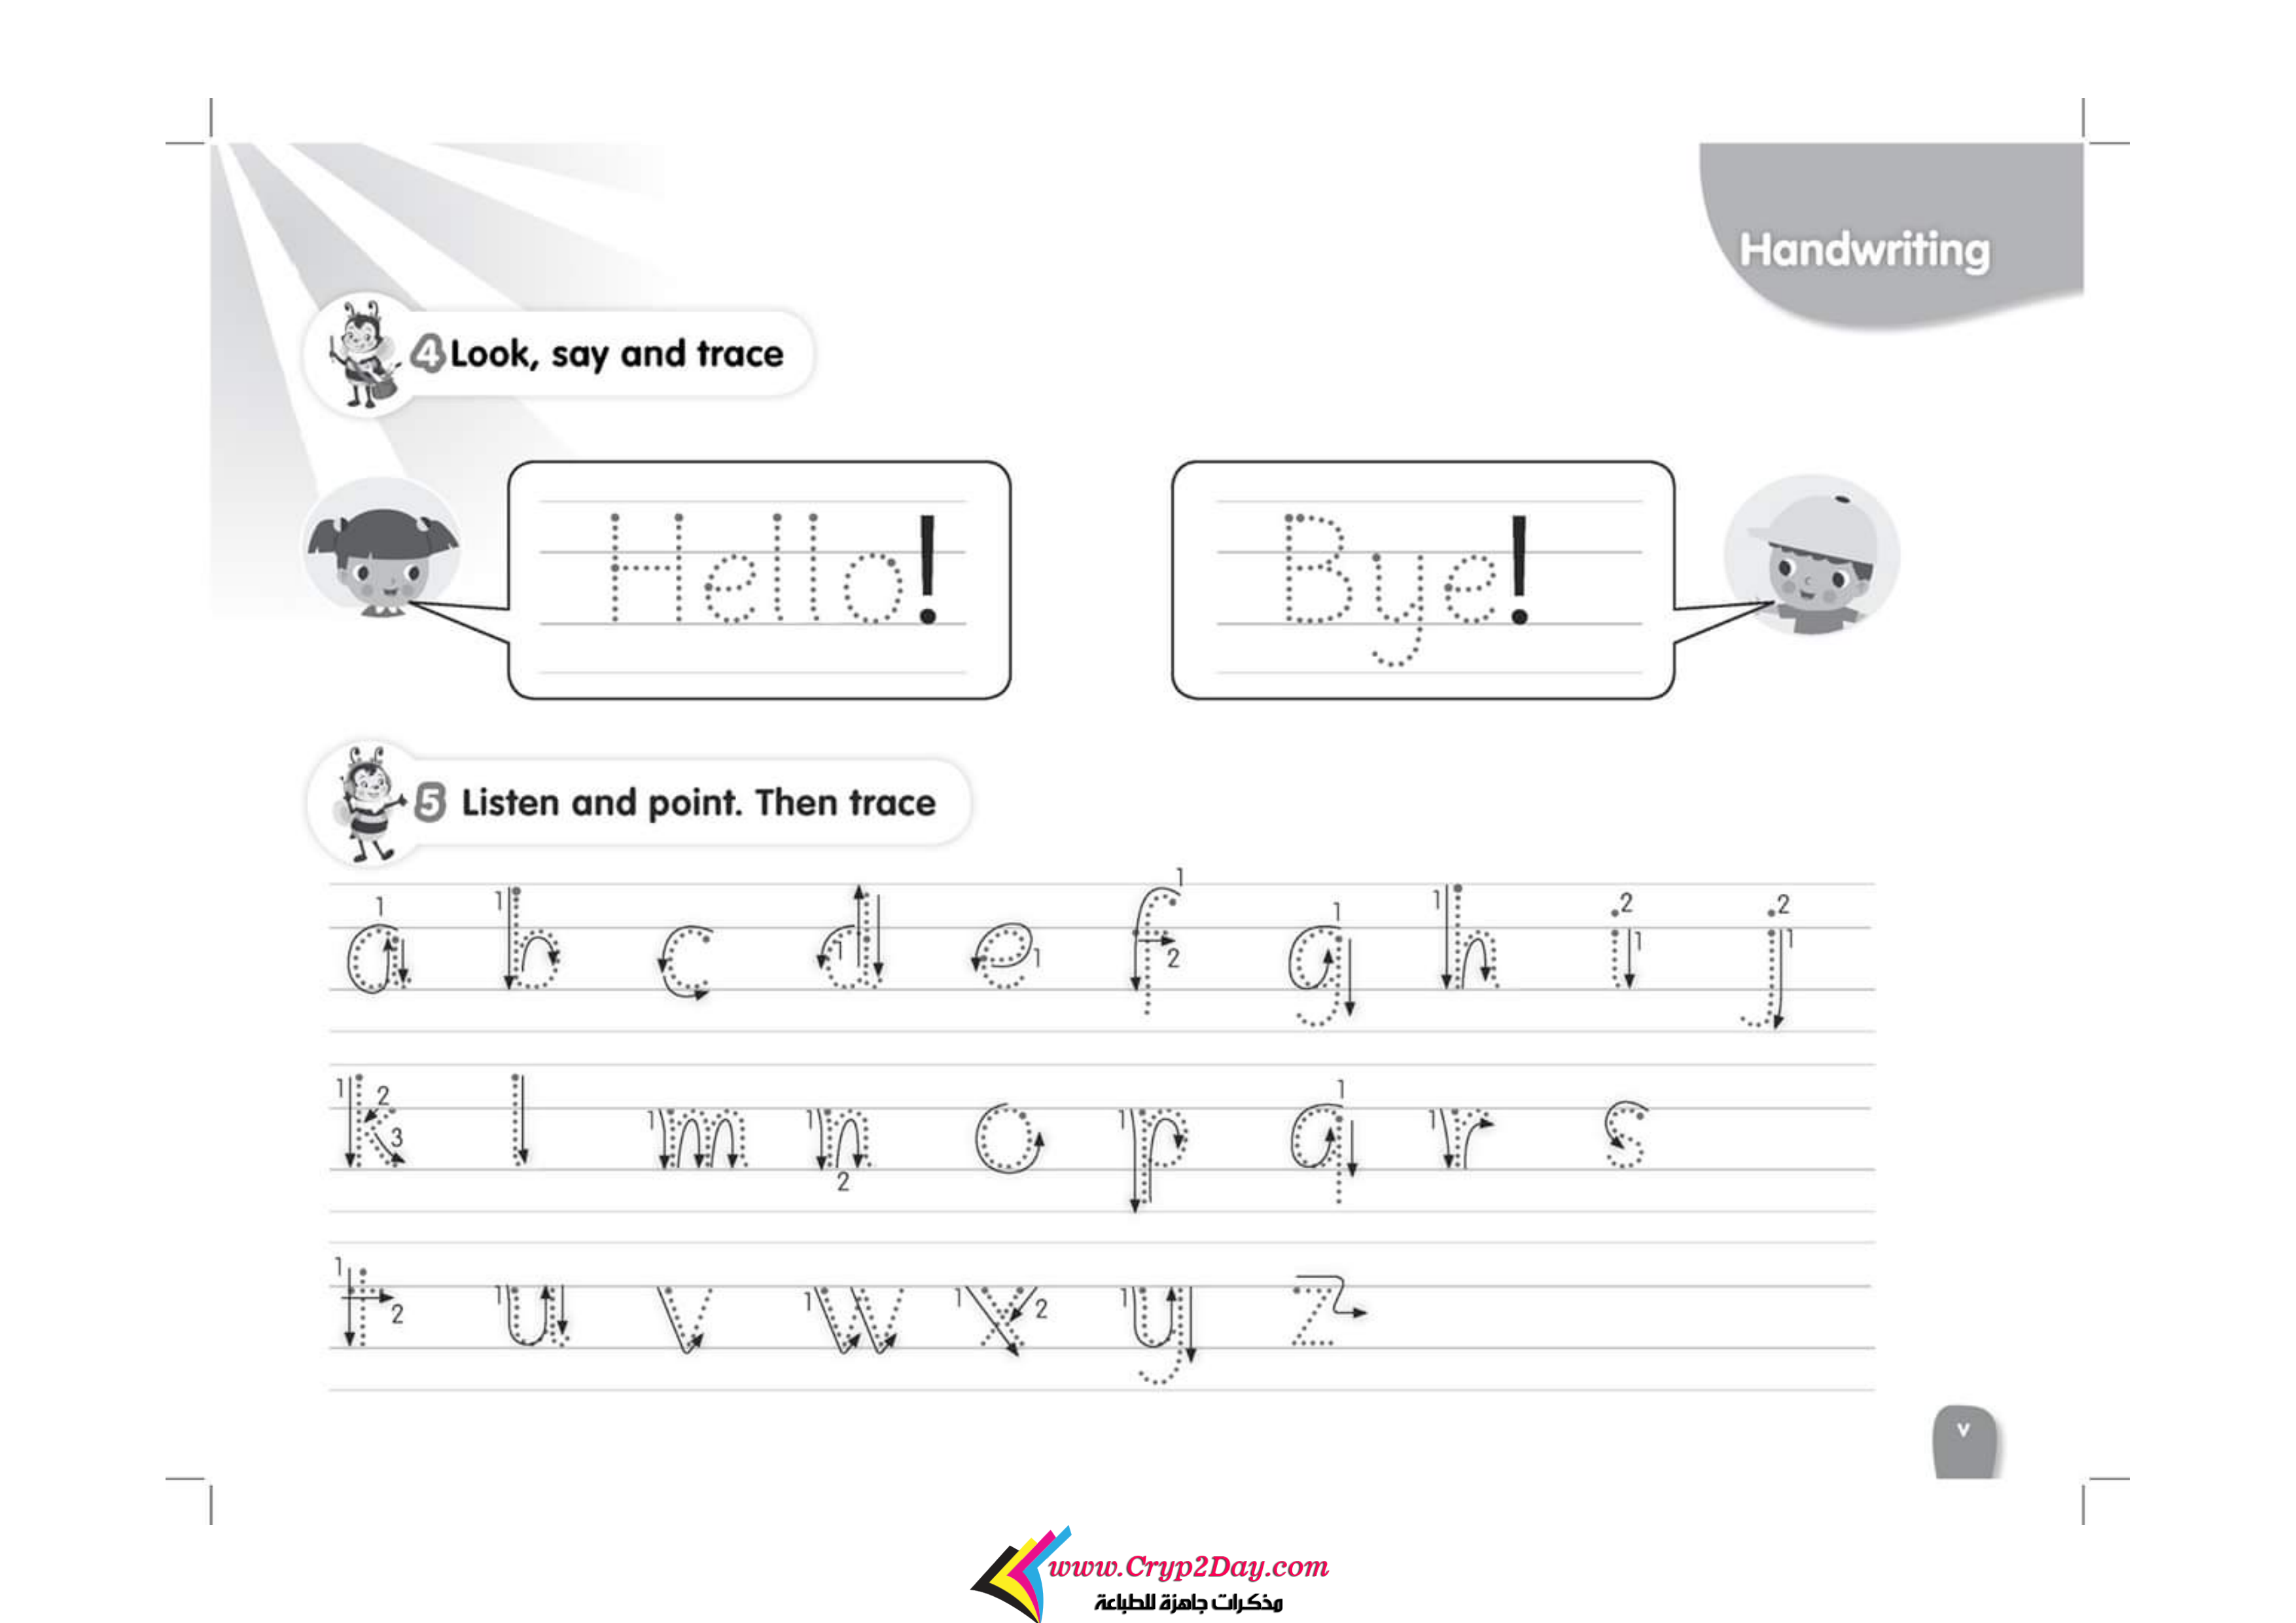 Handwriting
4 Look, say and trace
Hello!
Bye!
5 Listen and point. Then trace
1 1 1 1 1 2 1 1 2 1 2 1
a b c d e f g h i j
1 2 3 1 1 2 1 1 1
k l m n o p q r s
1 2 1 1 1 2 1
t u v w x y z
٧
www.Cryp2Day.com
مذكرات جاهزة للطباعة